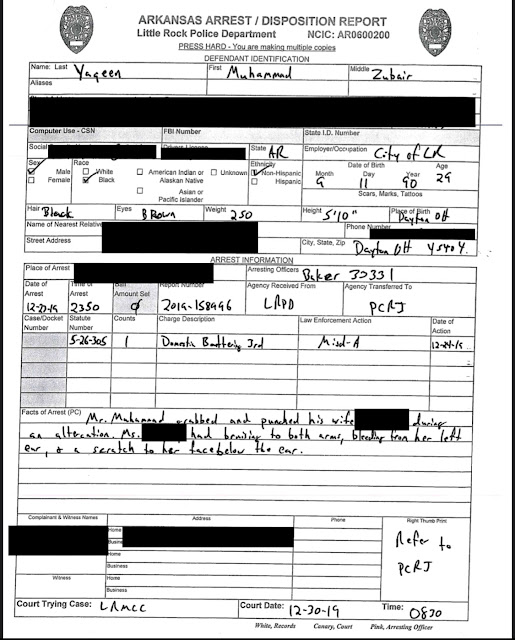 ARKANSAS ARREST / DISPOSITION REPORT
Little Rock Police Department NCIC: AR0600200
PRESS HARD - You are making multiple copies
DEFENDANT IDENTIFICATION
Name: Last Yaqeen First Muhammad Middle Zubair
Aliases
Computer Use - CSN FBI Number State I.D. Number
Social State AR Employer/Occupation City of LR
Sex Male Female
Race White Black American Indian or Alaskan Native Asian or Pacific Islander Unknown
Ethnicity Non-Hispanic Hispanic
Date of Birth Month 9 Day 11 Year 90 Age 29
Scars, Marks, Tattoos
Hair Black Eyes BROWN Weight 250 Height 5'10" Place of Birth Dayton OH
Name of Nearest Relative Phone Number
Street Address City, State, Zip Dayton OH 45404
ARREST INFORMATION
Place of Arrest Arresting Officers Baker 33331
Date of Arrest 12-23-19 Time of Arrest 2350 Amount Set Ø Report Number 2019-158996 Agency Received From LRPD Agency Transferred To PCRJ
Case/Docket Number Statute Number Counts Charge Description Law Enforcement Action Date of Action
5-26-305 1 Domestic Battering 3rd Misd-A 12-24-19
Facts of Arrest (PC)
Mr. Muhammad grabbed and punched his wife during
an altercation. Ms. had bruising to both arms, bleeding from her left
ear, & a scratch to her face below the ear.
Complainant & Witness Names Address Phone Right Thumb Print
Home
Busine
Home
Business
Witness
Home
Business
Refer to
PCRJ
Court Trying Case: LRMCC Court Date: 12-30-19 Time: 0830
White, Records Canary, Court Pink, Arresting Officer